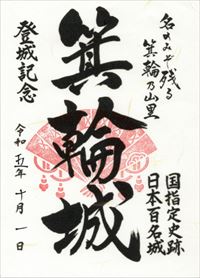 名のみや残る
箕輪乃山里
国指定史跡
日本百名城
箕輪城
登城記念
令和五年十月一日